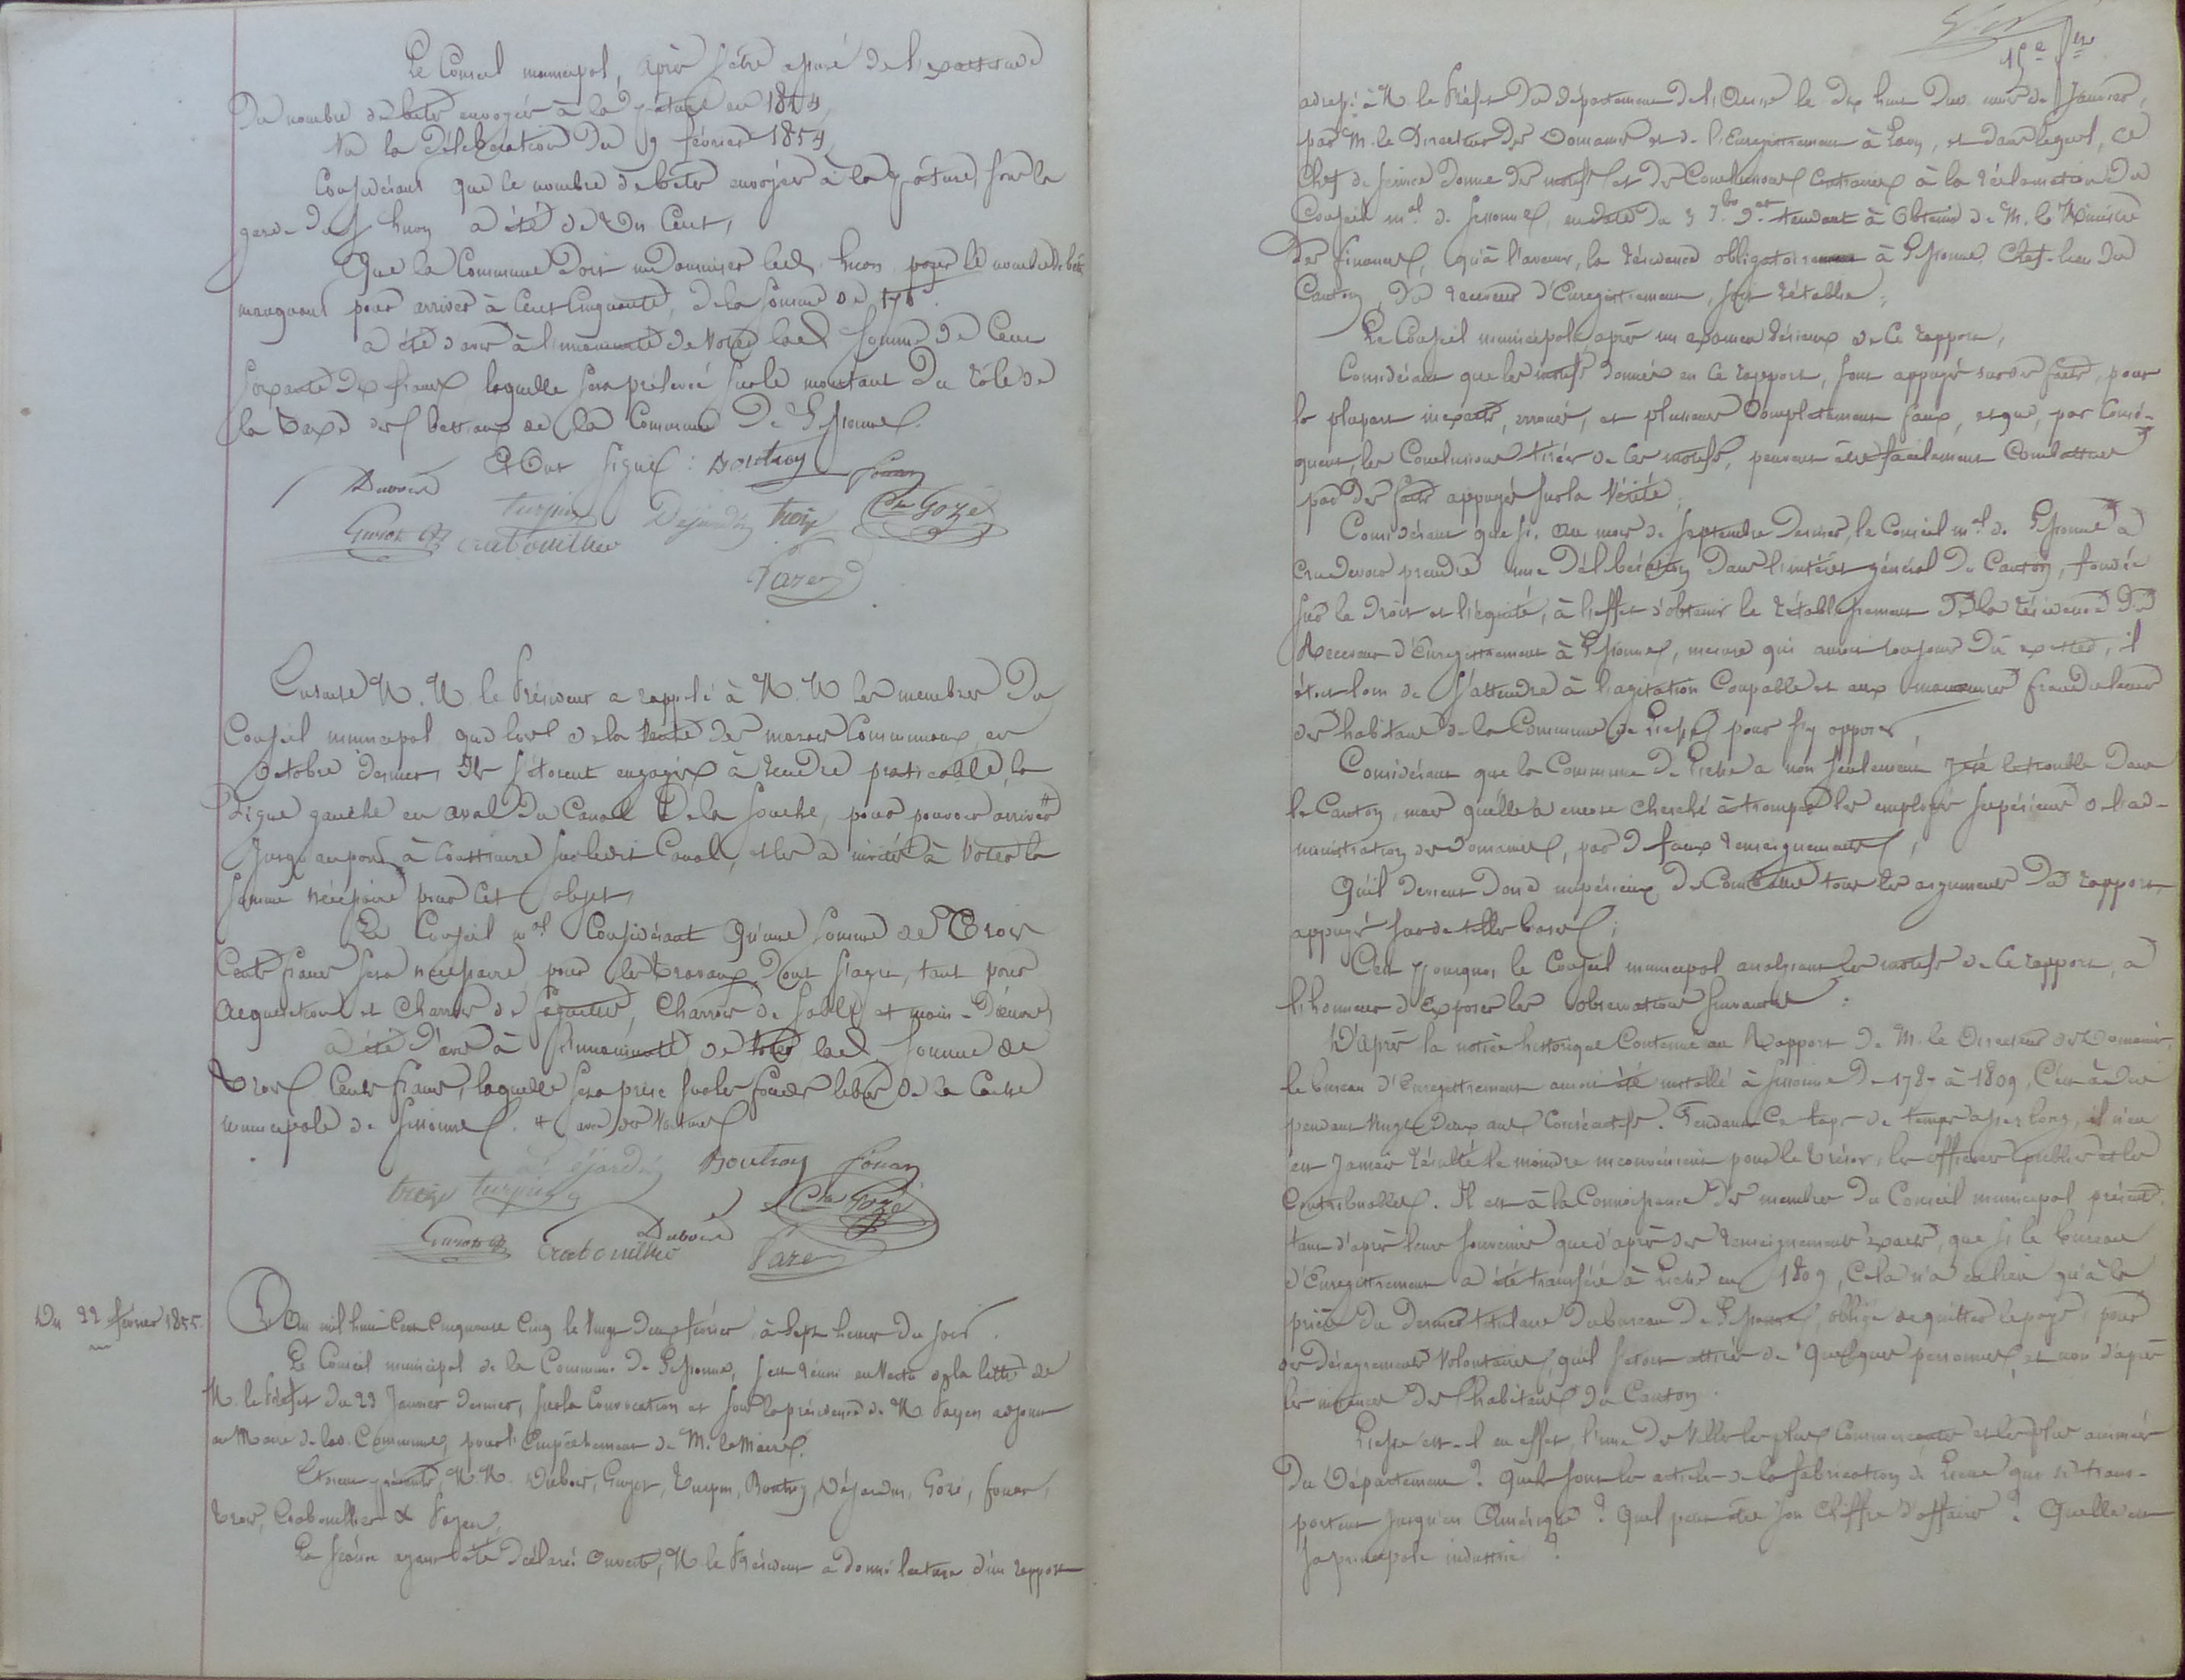 Le Conseil municipal, après s'être assuré de l'exactitude
du nombre de bêtes envoyées à la pâture en 1854,
Vu la délibération du 9 février 1854,
Considérant que le nombre de bêtes envoyées à la pâture, sous la
garde du huon a été de Cent,
Que la Commune doit indemniser led. huon pour le nombre de bêtes
manquant pour arriver à Cent Cinquante, de la somme de 170f
a été d'avis à l'unanimité de voter lad. somme de Cent
soixante dix francs laquelle sera prélevée sur le montant du rôle de
la taxe des bestiaux de la Commune de Sissonne.
Et Ont signé : Boutroy Fouan
Dubois Turpin Dejardin trois Ch. Gozé
Guyot Crabouillier
Payen
Ensuite M. M. le Président a rappelé à M. M. les membres du
Conseil municipal que lors de la vente des marais Communaux, en
Octobre dernier, Ils s'étoient engagés à rendre praticable, la
digue gauche en aval du Canal de la Souche, pour pouvoir arriver #
jusqu'au pont à Construire sur ledit Canal, et les a invités à voter la
somme nécessaire pour cet objet,
Le Conseil mal Considérant Qu'une somme de Trois
Cents francs sera nécessaire pour les travaux dont s'agit, tant pour
acquisition et Charroi de , Charroi de sable et main-d'œuvre
a été d'avis à l'unanimité de voter lad. somme de
Trois Cents francs, laquelle sera prise sur les fonds libres de la Caisse
municipale de Sissonne. # avec des voitures
Dejardin Boutroy Fouan
trois turpin Ch Gozé
Guyot Crabouillier Dubois Payen
Du 22 février 1855.
L'an mil huit Cent Cinquante Cinq le vingt deux février à sept heures du soir.
Le Conseil municipal de la Commune de Sissonne, s'est réuni en vertu de la lettre de
M. le Préfet du 23 Janvier dernier, sur la Convocation et sous la présidence de M. Payen adjoint
au Maire de lad. Commune, pour l'Empêchement de M. le Maire.
Etoient présents, M.M. Dubois, Guyot, Turpin, Boutroy, Déjardin, Gozé, fouan,
Trois, Crabouillier & Payen,
La séance ayant été déclarée ouverte, M. le Président a donné lecture d'un rapport
adressé à M. le Préfet du département de l'Aisne le dix huit du mois de Janvier,
par M. le Directeur des Domaines et de l'Enregistrement à Laon, et dans lequel, ce
Chef de service donne des motifs et des Conclusions Contraires à la réclamation du
Conseil mal de Sissonne, en date du 3 7bre der tendant à Obtenir de M. le Ministre
des finances, qu'à l'avenir, la résidence obligatoire à Sissonne, Chef-lieu du
Canton, du receveur d'Enregistrement, soit rétablie ;
Le Conseil municipal, après un examen sérieux de ce rapport,
Considérant que les motifs donnés en ce rapport, sont appuyés sur des faits, pour
la plupart inexacts, erronés, et plusieurs Complètement faux, et que, par Consé-
quent, les Conclusions tirées de ces motifs, peuvent être facilement Combattues
par des faits appuyés sur la vérité ;
Considérant que si, au mois de Septembre dernier, le Conseil mal de Sissonne a
cru devoir prendre une délibération dans l'intérêt général du Canton, fondée
sur le droit et l'équité, à l'effet d'obtenir le rétablissement de la résidence du
Receveur d'Enregistrement à Sissonne, mesure qui auroit toujours dû exister, il
étoit loin de s'attendre à l'agitation Coupable et aux manœuvres frauduleuses
des habitans de la Commune de Liesse pour s'y opposer,
Considérant que la Commune de Liesse a non seulement jeté le trouble dans
le Canton, mais qu'elle a encore cherché à tromper les employés supérieurs de l'ad-
ministration des Domaines, par de faux renseignements,
Qu'il devient donc impérieux de Combattre tous les argumens du rapport
appuyé sur de telles bases ;
C'est pourquoi le Conseil municipal analysant les motifs de ce rapport, a
l'honneur d'exposer les observations suivantes :
D'après la notice historique Contenue au Rapport de M. le Directeur des Domaines,
le bureau d'Enregistrement auroit été installé à Sissonne de 1787 à 1809, c'est à dire
pendant vingt-deux ans Consécutifs. Pendant ce laps de temps assez long, il n'en
est jamais résulté le moindre inconvénient pour le trésor, les officiers publics et les
Contribuables. Il est à la Connoissance des membres du Conseil municipal présents
tant d'après leurs souvenirs que d'après des renseignements exacts, que si le bureau
d'Enregistrement a été transféré à Liesse en 1809, Cela n'a eu lieu qu'à la
prière du dernier titulaire du bureau de Sissonne, obligé de quitter le pays, pour
des désagréments volontaires qu'il s'étoit attirés de quelques personnes, et non d'après
les instances des habitans du Canton.
Liesse est-il en effet, l'une des villes les plus Commerçantes et les plus animées
du Département ? Quels sont les articles de la fabrication de Liesse qui se trans-
portent jusqu'en Amérique ? Quel peut être son chiffre d'affaires ? Quelle est
sa principale industrie ?